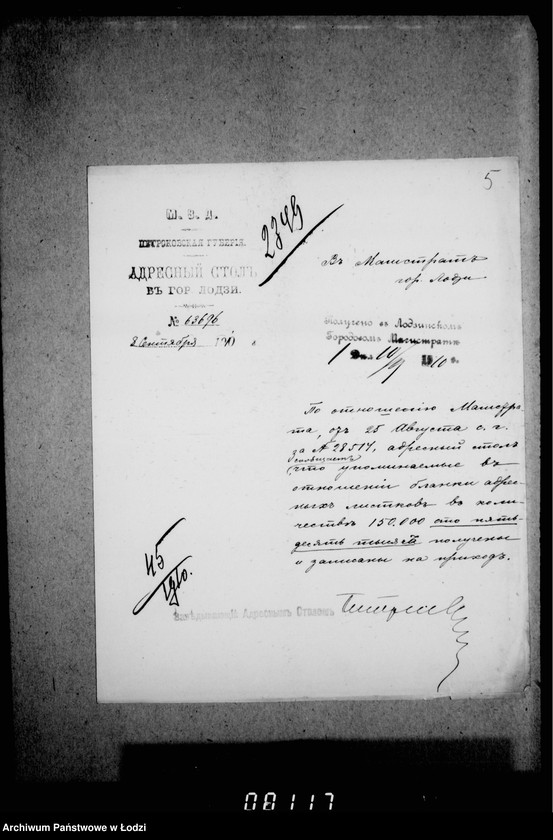 5
М. В. Д.
ПЕТРОКОВСКАЯ ГУБЕРНІЯ.
АДРЕСНЫЙ СТОЛЪ
ВЪ ГОР. ЛОДЗИ.
№ 63696
2 Сентября 1910 г.
2349
Въ Магистратъ
гор. Лодзи
Получено въ Лодзинскомъ
Городовомъ Магистратѣ
Дня 10/IX 1910 г.
По отношенію Магистра-
та, отъ 25 Августа с. г.
за № 28517, адресный столъ
сообщаетъ
что упоминаемые въ
отношеніи бланки адрес-
ныхъ листковъ въ коли-
чествѣ 150.000 сто пять-
десятъ тысячъ получены
и записаны на приходъ.
45
1910.
Завѣдывающій Адреснымъ Столомъ
08117
Archiwum Państwowe w Łodzi